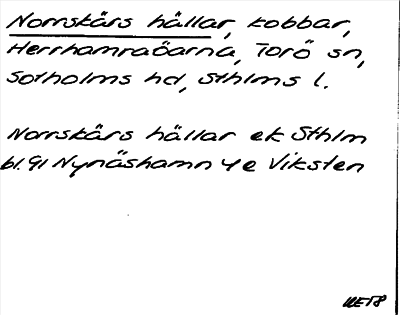 Norrskärs hällar, kobbar,
Herrhamraöarna, Torö sn,
Sotholms hd, Sthlms l.
Norrskärs hällar ek Sthlm
bl. 91 Nynäshamn 4e Viksten